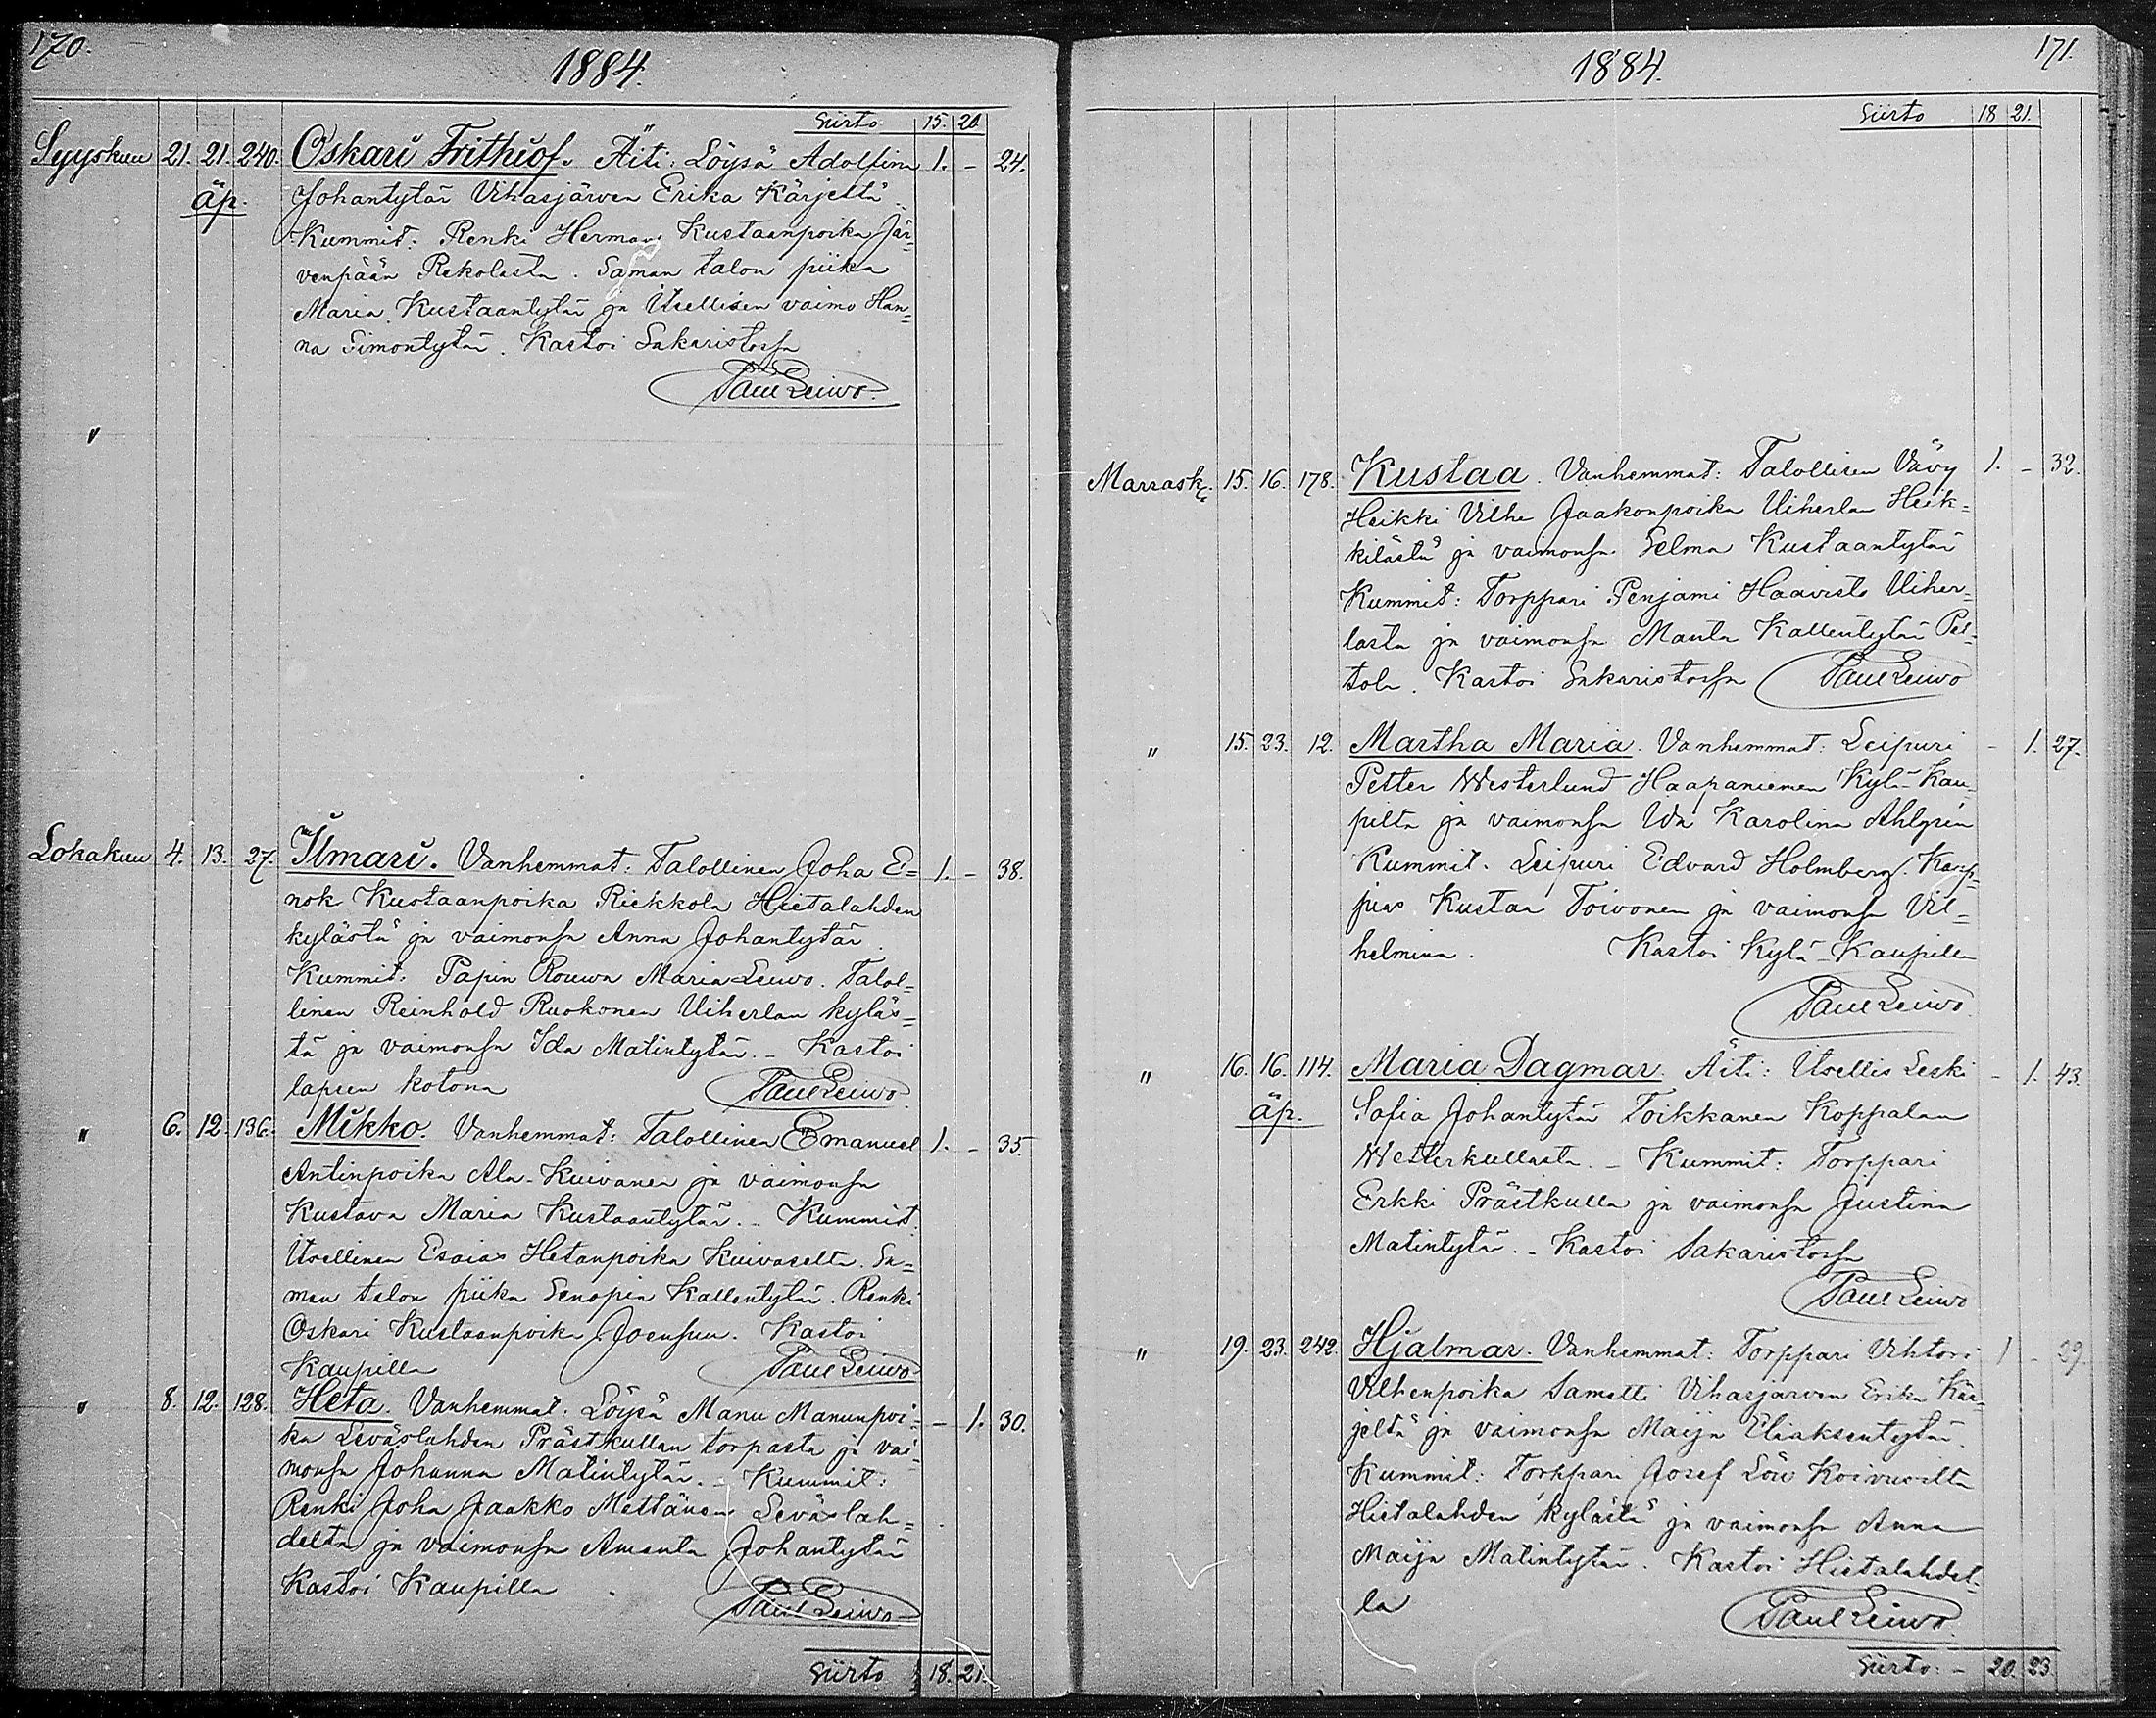 170.
1884.
Siirto 15. 20.
Syyskuu 21. 21. 240. Oskari Frithiof. Äiti: Löysä Adolfina 1. - 24.
äp. Johantytär Vihasjärven Erika Kärjeltä.
Kummit: Renki Herman Kustaanpoika Jär=
venpään Rekolasta. Saman talon piika
Maria Kustaantytär ja Itsellisen vaimo Han=
na Simontytär. Kastoi Sakaristossa
Paul Leiwo.
"
Lokakuu 4. 13. 27. Ilmari. Vanhemmat: Talollinen Joha E= 1. - 38.
nok Kustaanpoika Riekkola Hietalahden
kylästä ja vaimonsa Anna Johantytär.
Kummit: Papin Rouwa Maria Leiwo. Talol=
linen Reinhold Ruokonen Uiherlan kyläs=
tä ja vaimonsa Ida Matintytär. - Kastoi
lapsen kotona Paul Leiwo.
" 6. 12. 136. Mikko. Vanhemmat: Talollinen Emanuel 1. - 35.
Antinpoika Ala-Kuivanen ja vaimonsa
Kustava Maria Kustaantytär. - Kummit.
Itsellinen Esaias Hetanpoika Kuivaselta. Sa=
man talon piika Senopia Kallentytär. Renki
Oskari Kustaanpoika Joensuu. Kastoi
Kaupilla Paul Leiwo
" 8. 12. 128. Heta. Vanhemmat: Löysä Manu Manunpoi= - 1. 30.
ka Leväslahden Prästkullan torpasta ja vai=
monsa Johanna Matintytär. - Kummit:
Renki Joha Jaakko Mettänen Leväslah=
delta ja vaimonsa Amanta Johantytär
Kastoi Kaupilla. Paul Leiwo
Siirto 18. 21.
171.
1884.
Siirto 18 21.
Marrask. 15. 16. 178. Kustaa. Vanhemmat: Talollisen Vävy 1. - 32.
Heikki Vilhe Jaakonpoika Uiherlan Heik=
kilästä ja vaimonsa Selma Kustaantytär
Kummit: Torppari Penjami Haavisto Uiher=
lasta ja vaimonsa Manta Kallentytär Pel=
tola. Kastoi Sakaristossa Paul Leiwo
" 15. 23. 12. Martha Maria. Vanhemmat: Leipuri - 1. 27.
Petter Westerlund Haapaniemen Kylä-Kau=
pilta ja vaimonsa Ida Karolina Ahlgrén
Kummit. Leipuri Edvard Holmberg. Kaup=
pias Kustaa Toivonen ja vaimonsa Vil=
helmina. Kastoi Kylä-Kaupilla
Paul Leiwo.
" 16. 16. 114. Maria Dagmar. Äiti: Itsellis Leski - 1. 43.
äp. Sofia Johantytär Toikkanen Koppalan
Wetterkullasta. - Kummit: Torppari
Erkki Prästkulla ja vaimonsa Justina
Matintytär. - Kastoi Sakaristossa
Paul Leiwo
" 19. 23. 242. Hjalmar. Vanhemmat: Torppari Vihtori 1 - 29.
Vilhenpoika Samatti Vihasjärven Erika Kär=
jeltä ja vaimonsa Maija Eliaksentytär.
Kummit: Torppari Josef Löv Koivusilta
Hietalahden kylästä ja vaimonsa Anna
Maija Matintytär. Kastoi Hietalahdel=
la Paul Leiwo.
Siirto: - 20. 23.